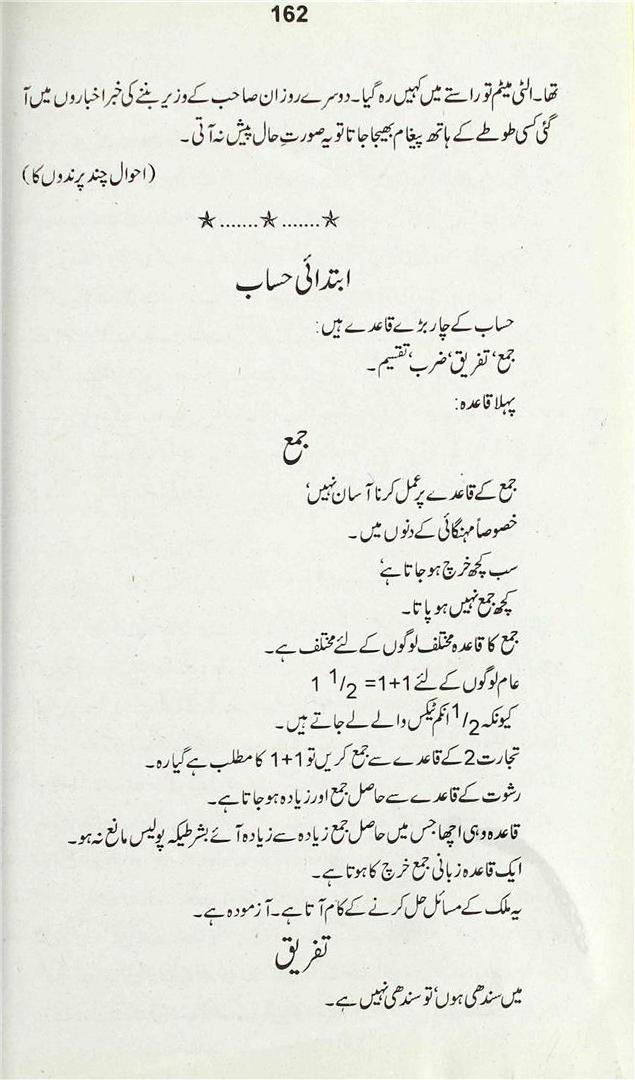 162
تھا۔ الٹی میٹم تو راستے میں کہیں رہ گیا۔ دوسرے روز ان صاحب کے وزیر بننے کی خبر اخباروں میں آ
گئی کسی طوطے کے ہاتھ پیغام بھیجا جاتا تو یہ صورتِ حال پیش نہ آتی۔
(احوال چند پرندوں کا)
★.......★.......★
ابتدائی حساب
حساب کے چار بڑے قاعدے ہیں:
جمع، تفریق، ضرب، تقسیم۔
پہلا قاعدہ:
جمع
جمع کے قاعدے پر عمل کرنا آسان نہیں،
خصوصاً مہنگائی کے دنوں میں۔
سب کچھ خرچ ہو جاتا ہے،
کچھ جمع نہیں ہو پاتا۔
جمع کا قاعدہ مختلف لوگوں کے لئے مختلف ہے۔
عام لوگوں کے لئے 1+1= 1 1/2
کیونکہ 1/2 انکم ٹیکس والے لے جاتے ہیں۔
تجارت 2 کے قاعدے سے جمع کریں تو 1+1 کا مطلب ہے گیارہ۔
رشوت کے قاعدے سے حاصل جمع اور زیادہ ہو جاتا ہے۔
قاعدہ وہی اچھا جس میں حاصل جمع زیادہ سے زیادہ آئے بشرطیکہ پولیس مانع نہ ہو۔
ایک قاعدہ زبانی جمع خرچ کا ہوتا ہے۔
یہ ملک کے مسائل حل کرنے کے کام آتا ہے۔ آزمودہ ہے۔
تفریق
میں سندھی ہوں، تو سندھی نہیں ہے۔